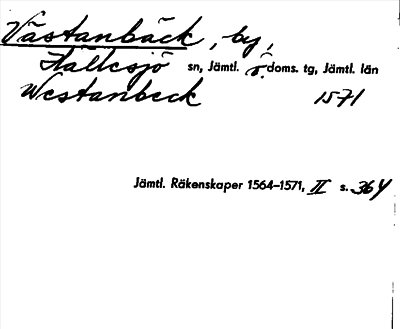 Västanbäck, by,
Hällesjö sn, Jämtl. ö. doms. tg, Jämtl. län
Westanbeck 1571
Jämtl. Räkenskaper 1564–1571, II s. 364